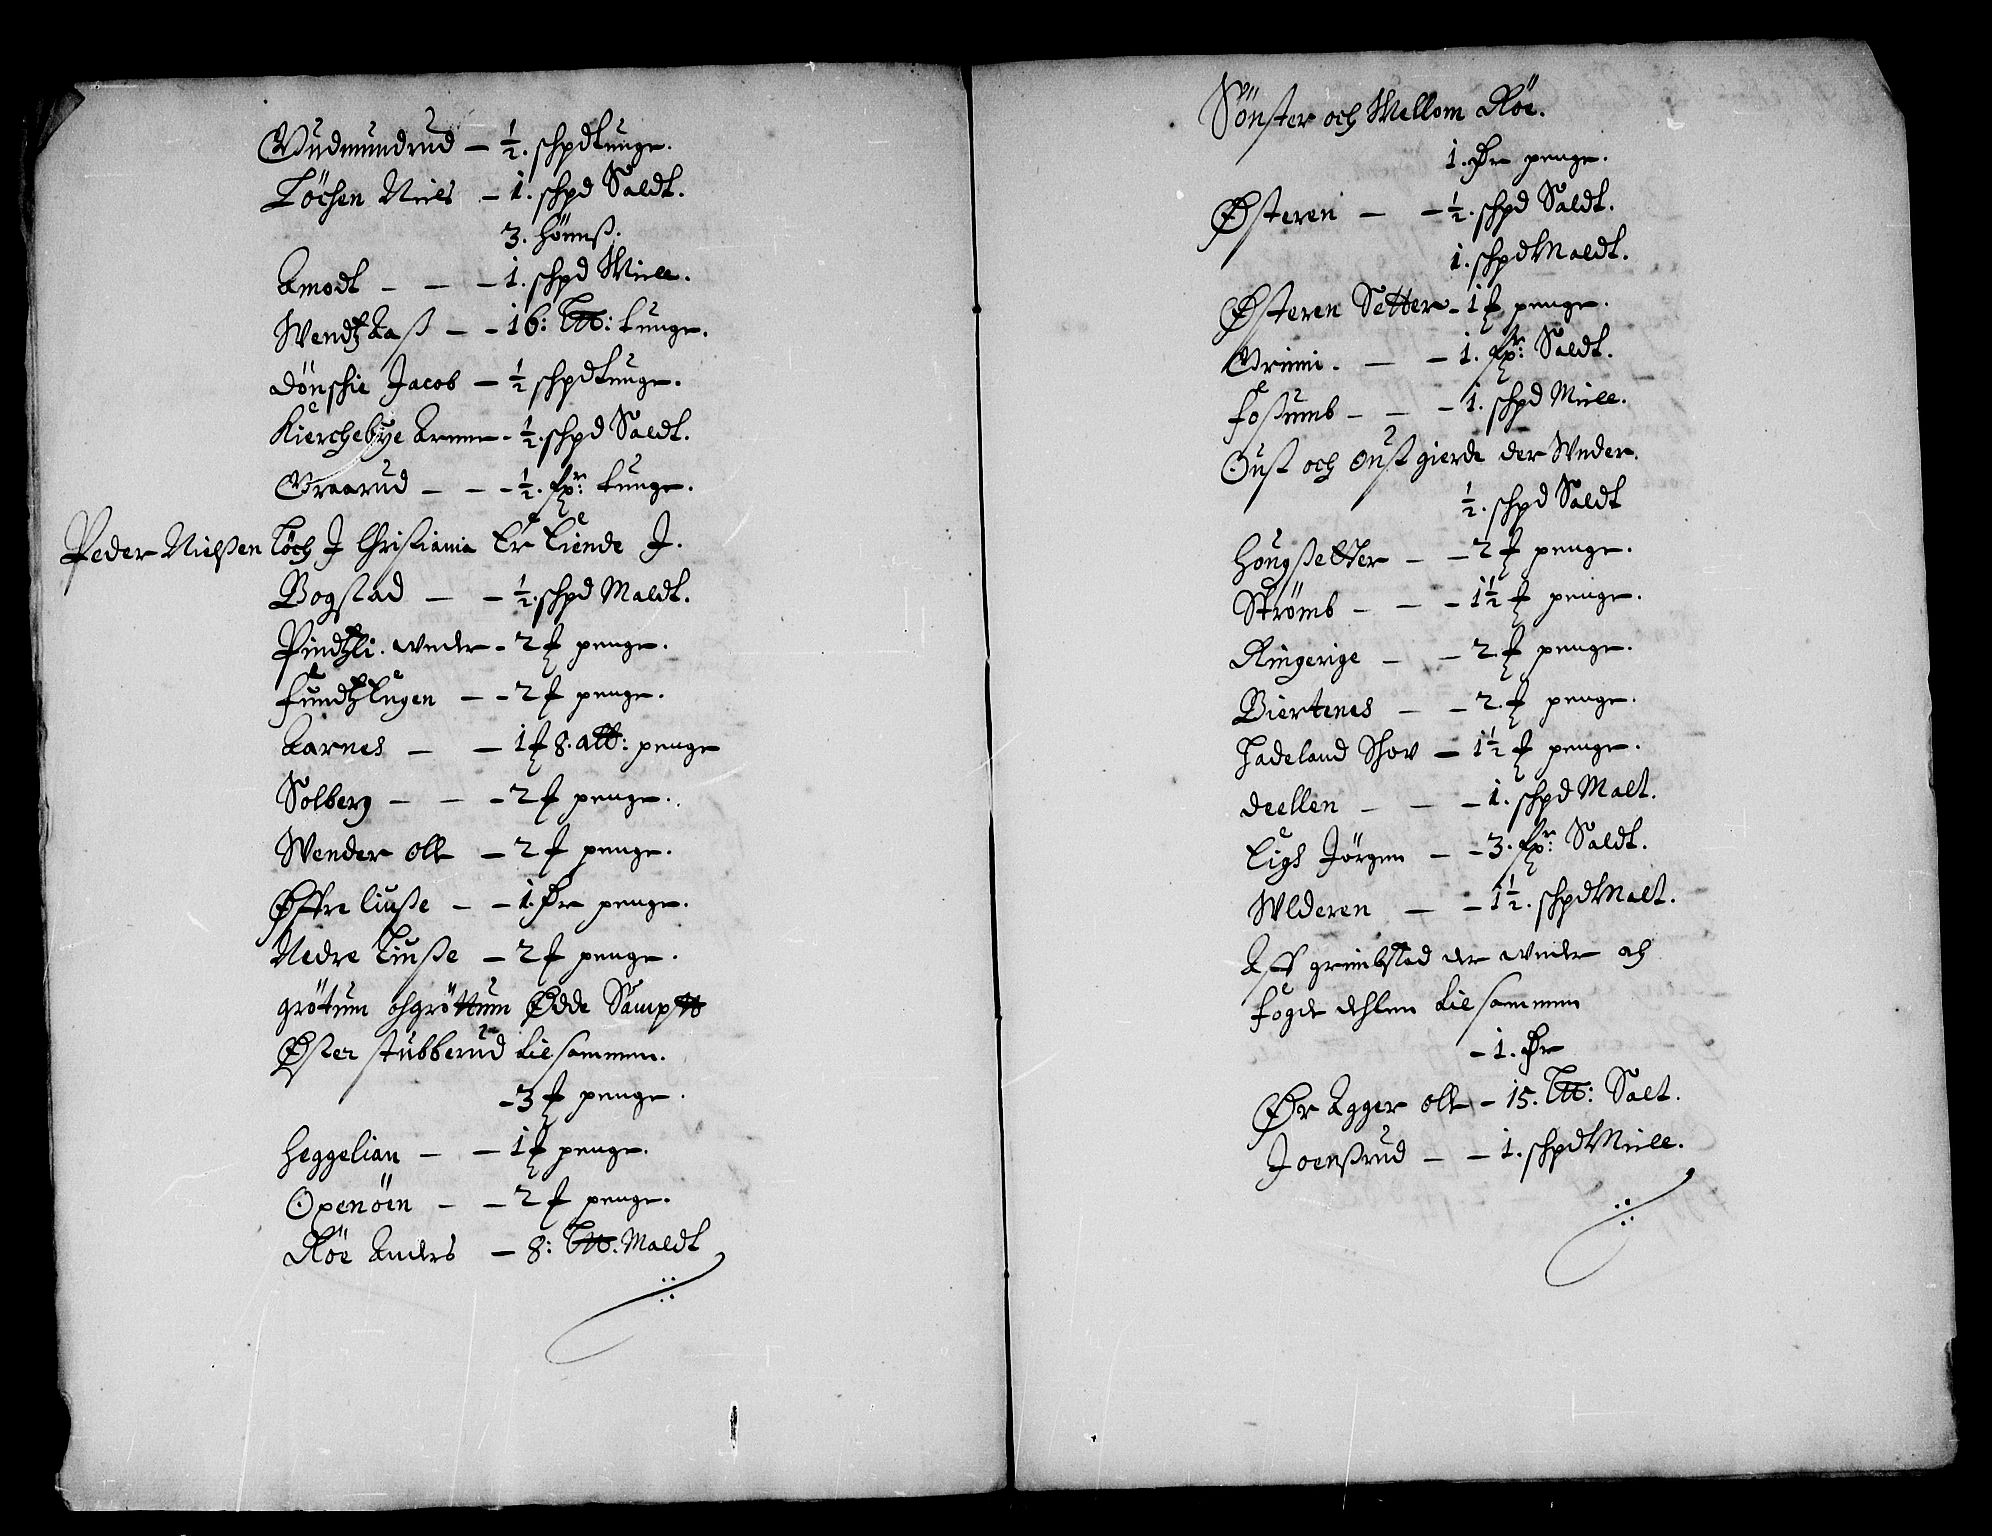 Gudmundrud – ½. schpd tunge.
Löchen Niels – 1. schpd Saldt.
3. hönns.
Amodt – – – 1. schpd Miell.
Wendtz Aaß – – 16: Ltt: tunge.
Dönschie Jacob – ½ schpd tunge.
Kierchebye Arnne – ½. schpd Saldt.
Graarud – – – ½. fpr: tunge.
Peder Nielßen Töch J Christiania Er Eiende J.
Bogstad – – ½. schpd Maldt.
Pindtzli. wnder – 2 ƒ penge.
Fundtzlugen – – 2 ƒ penge.
Aarnes – – 1 ƒ 8. alb: penge
Solberg – – – 2 ƒ penge.
Wender olle – 2 ƒ penge.
Øffre liuße – – 1. Ør penge.
Nedre Liuße – 2 ƒ penge.
grötum och gröttum Ødde Sampt
Øster stubberud til sammen.
– 3 ƒ penge.
Heggelian – – 1 ƒ penge.
Oxenöen – – 2 ƒ penge.
Röe Anders – 8: Ltt. Maldt
Sönster och Mellom Röe.
1. Ør penge.
Østeren – – ½. schpd Saldt.
1. schpd Maldt.
Østeren Setter – 1 ƒ penge.
Grinni. – – 1. fpr: Saldt.
Foßumb – – – 1. schpd Miell.
Oust och Oust gierde der Wnder.
½. schpd Saldt
Hougßetter – – 2 ƒ penge.
Strömb – – – 1½ ƒ penge.
Ringerige – – 2. ƒ penge.
Biertenes – – 2. ƒ penge.
Hadeland Shov – 1½ ƒ penge.
Deellen – – – 1. schpd Malt.
Eigs Jörgen – – 3. fpr: Saldt.
Wlderen – – 1½. schpd Malt.
Aff grimbstad der wnder och
Fogde dehlen til sammen
– 1. Ør
Ør Agger olle – 15. Ltt: Salt.
Joenßrud – – 1. schpd Miell.